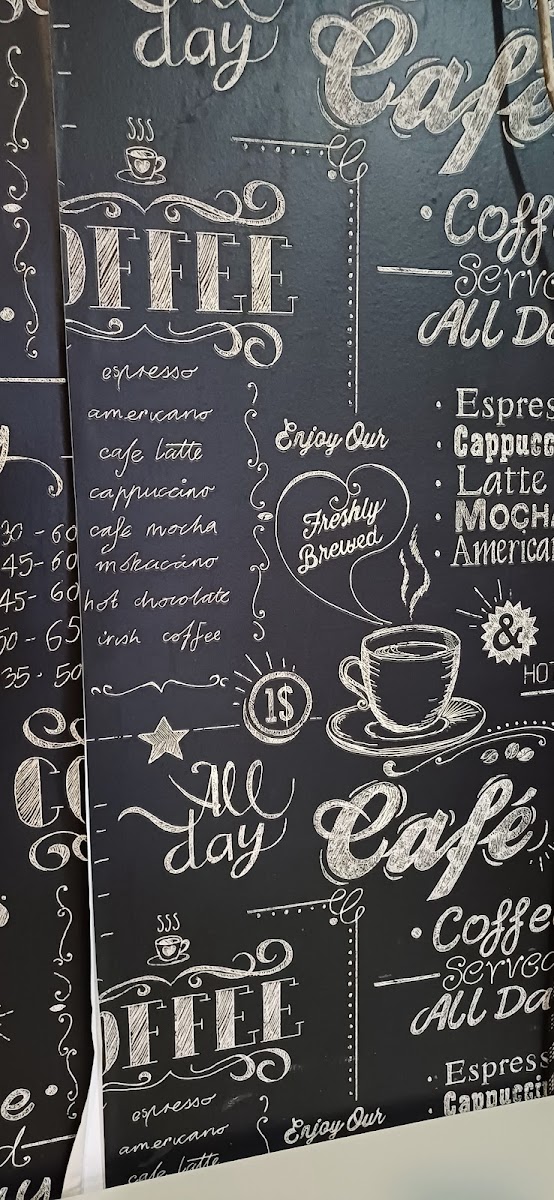 day
Café
COFFEE
Coffe
Serve
All Da
espresso
americano
cafe latte
cappuccino
cafe mocha
mokaccino
hot chocolate
irish coffee
30 - 60
45- 60
45- 60
50 - 65
35 . 50
Enjoy Our
Freshly
Brewed
Espres
Cappucc
Latte
MOCHA
American
&
HO
1$
All
day
Café
CO
OFFEE
Coffe
Served
All Da
espresso
americano
cafe latte
Enjoy Our
Espress
Cappucci